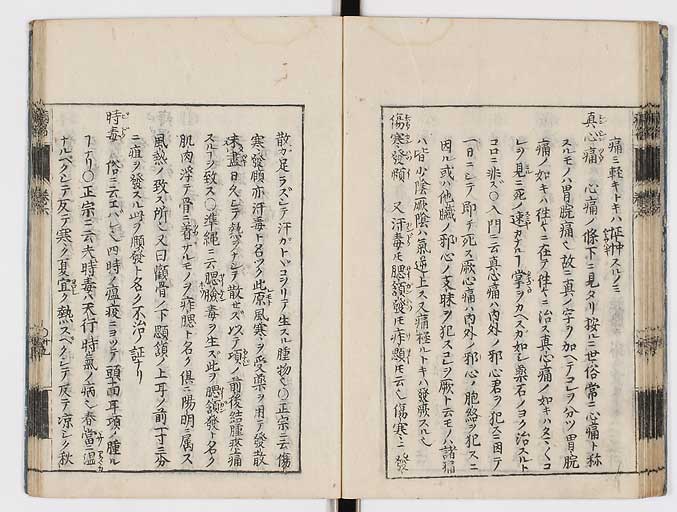 痛ミ軽キトキハ怔忡スルノミ
真心痛　心痛ノ條下ニ見タリ按ニ世俗常ニ心痛ト称
スルモノハ胃脘痛也故ニ真ノ字ヲ加ヘテコレヲ分ツ胃脘
痛ノ如キハ往々ニ在テ往々ニ治ス真心痛ノ如キハ
レヲ見ニ死ノ速カナルヿ掌ヲカヘスカ如シ薬石ノヨク治スル
ココロニ非ズ○入門ニ云真心痛ハ内外ノ邪心君ヲ犯スニ因テ
一日ニシテ即チ死ス厥心痛ハ内外ノ邪心ノ胞絡ヲ犯スニ
因ル或ハ他臓ノ邪心ノ支脉ヲ犯スコレヲ厥ト云モノハ諸痛
ハ皆少陰厥陰ノ氣逆上ス又痛極ルトキハ發厥スル也
傷寒發頤　又汗毒モ腮頷發モ痄顋モ云也傷寒ニ發
散カ足ラズシテ汗カトヾコヲリテ生スル腫物也○正宗ニ云傷
寒ノ發頤亦汗毒ト名ツク此原風寒ヲ受薬ヲ用テ發散
未盡日久シテ熱ツテシテ散セズ以テ項ノ前後結腫疼痛
スルヿヲ致ス○準縄ニ云腮臉毒ヲ生ズ此ヲ腮頷發ト名ク
肌肉浮テ骨ニ着サルモノヲ痄腮ト名ク倶ニ陽明ニ属ス
風熱ノ致ス所也又曰顴骨ノ下顋頷ノ上耳ノ前一寸三分
ニ疽ヲ發スル此ヲ顋發ト名ク不治ノ証ナリ
時毒　俗ニ云エバレ也四時ノ瘟疫ニヨツテ頭面耳項ノ腫ル
ヿナリ○正宗ニ云夫時毒ハ天行時氣ノ病也春當ニ温
ナルベクシテ反テ寒ク夏宜ク熱スベクシテ反テ凉シク秋